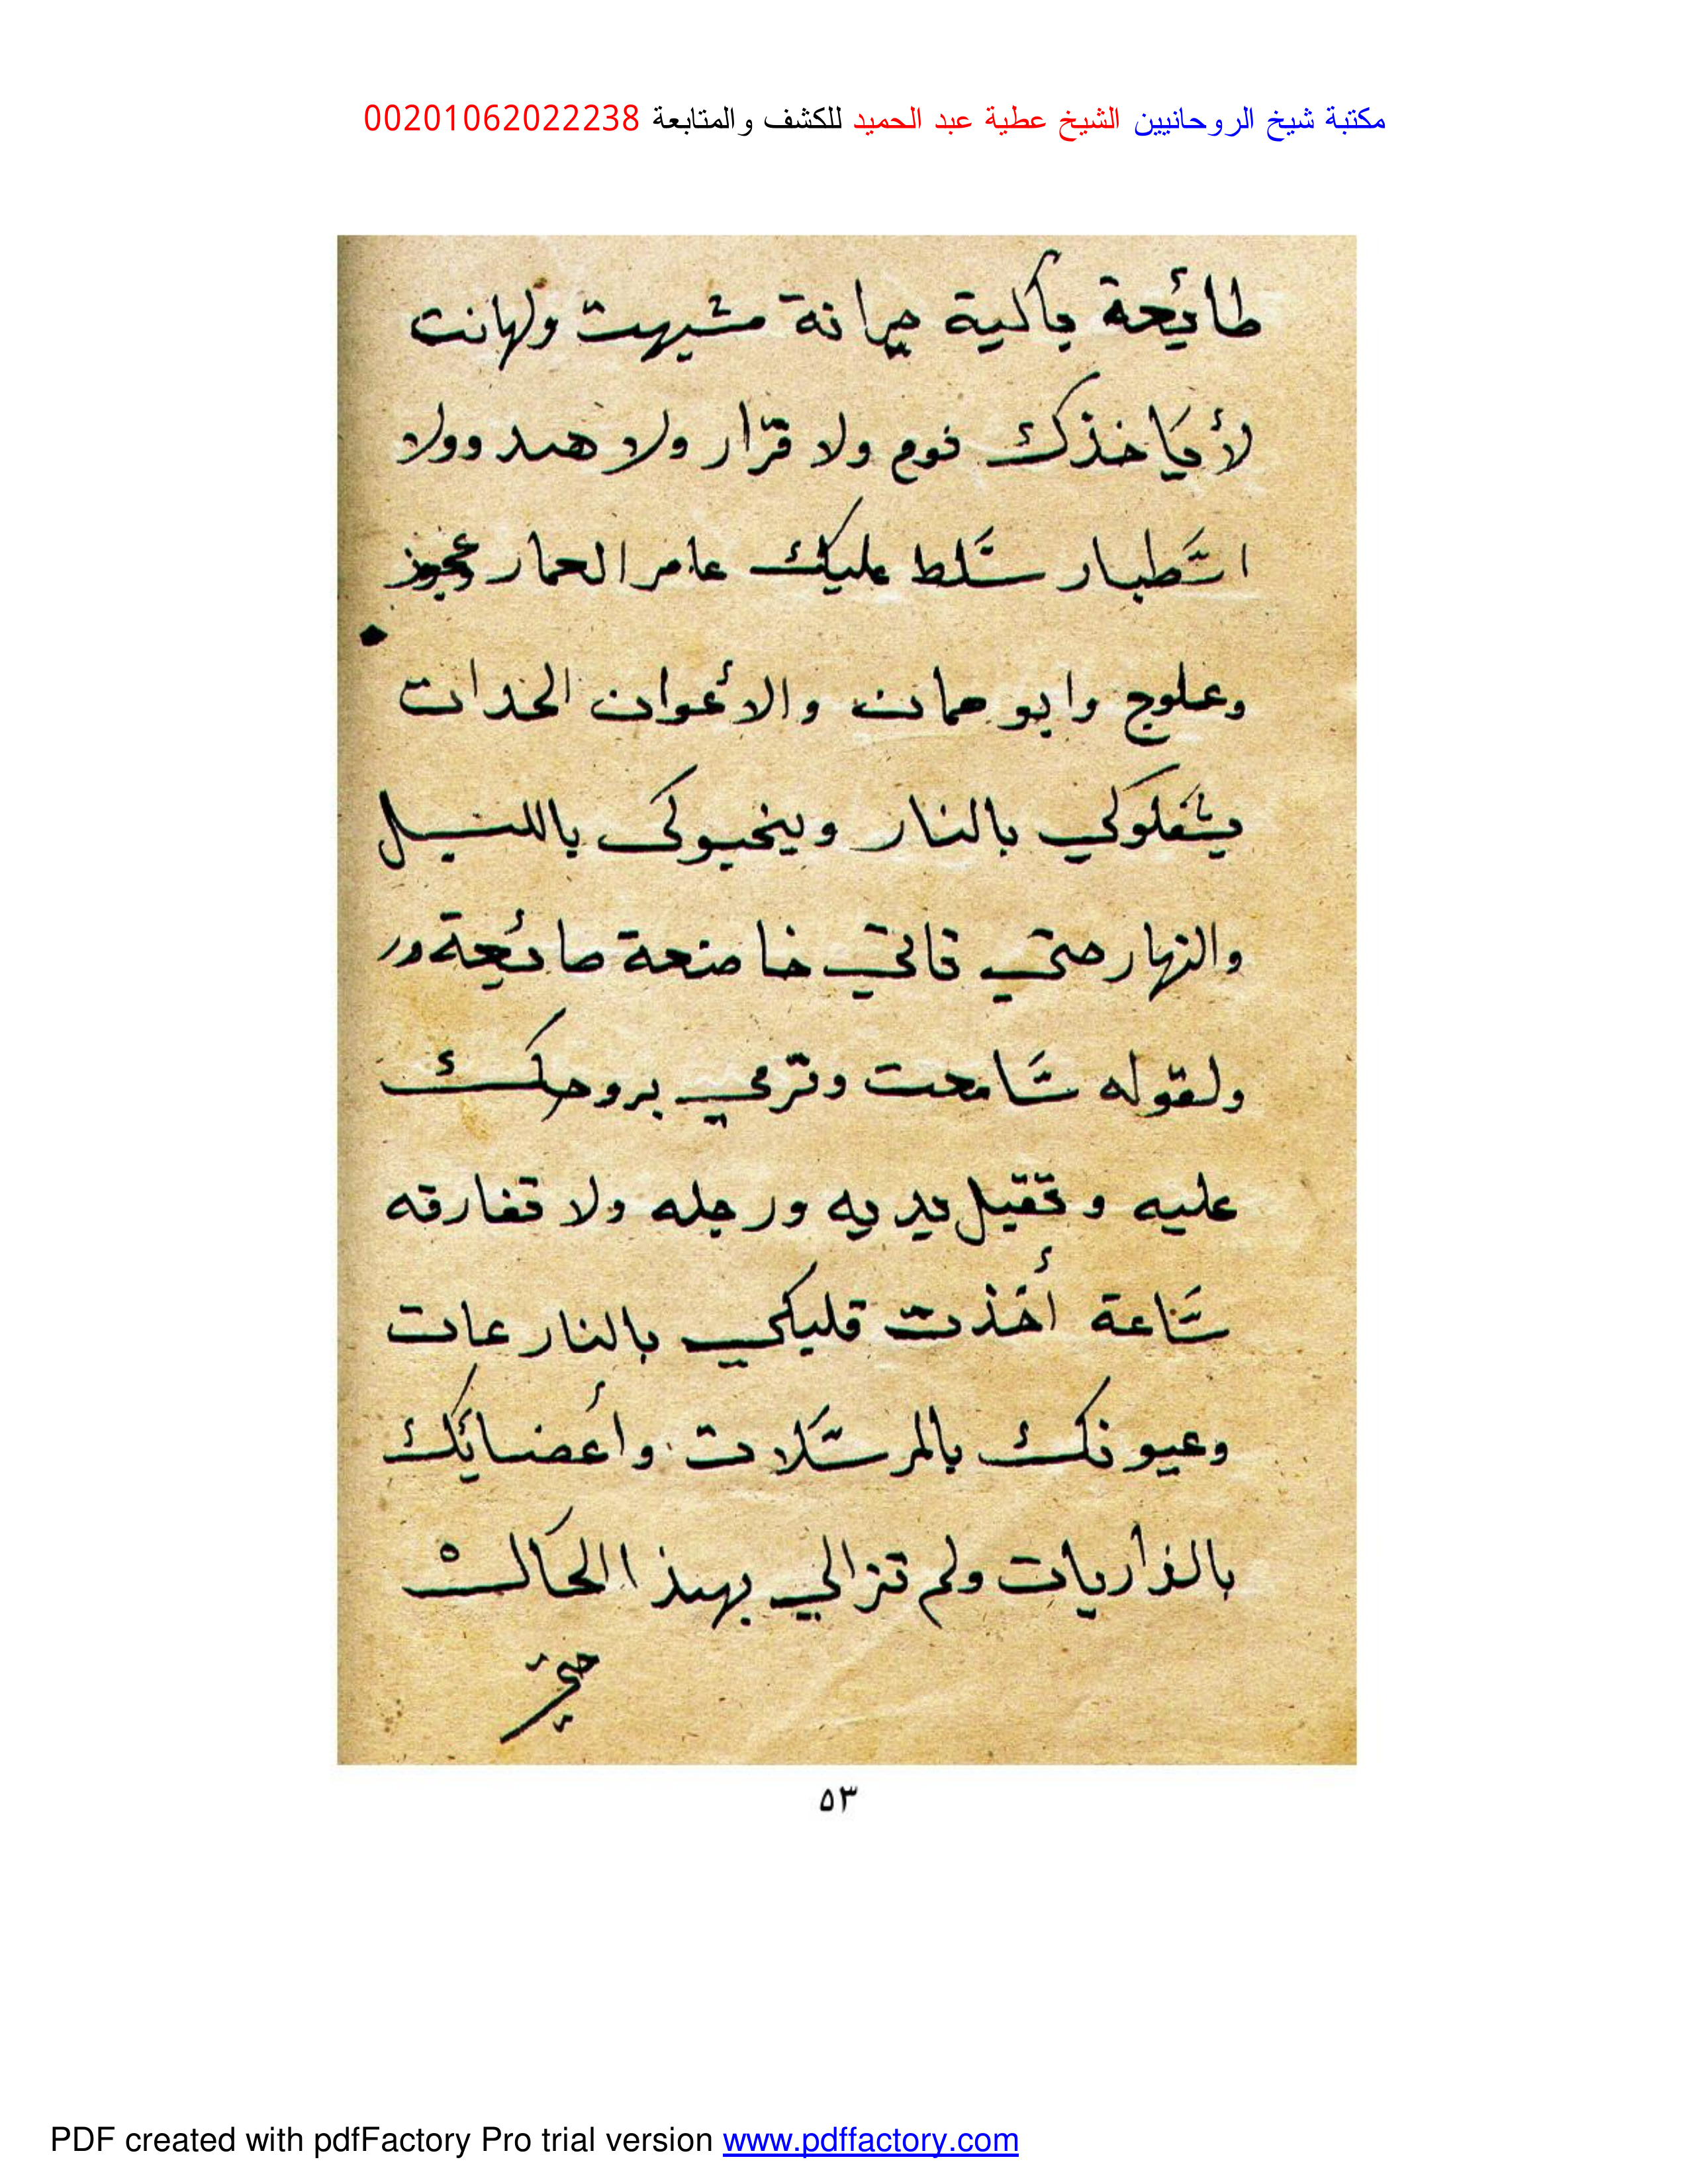 مكتبة شيخ الروحانيين الشيخ عطية عبد الحميد للكشف والمتابعة 00201062022238
طائحة باكية حيرانة مشيهت ولهانت
لأياخذك نوم ولا قرار ولا هدوولا
اسطبار سلط عليك عامر الحمار عجوز
وعلوج وابو حمان والأعوان الحدات
يشعلوكي بالنار وينخيوكى بالليل
والنهار حتي تاتي خاضعة صائحة ور
ولقوله سامحت وترمي بروحك
عليه وتقيل يديه ورجله ولا تفارقه
ساعة أخذت قليكي بالنارعات
وعيونك بالمرسلات وأعضائك
بالذاريات ولم تزالي بهذا الحالت
حتي
٥٣
PDF created with pdfFactory Pro trial version www.pdffactory.com